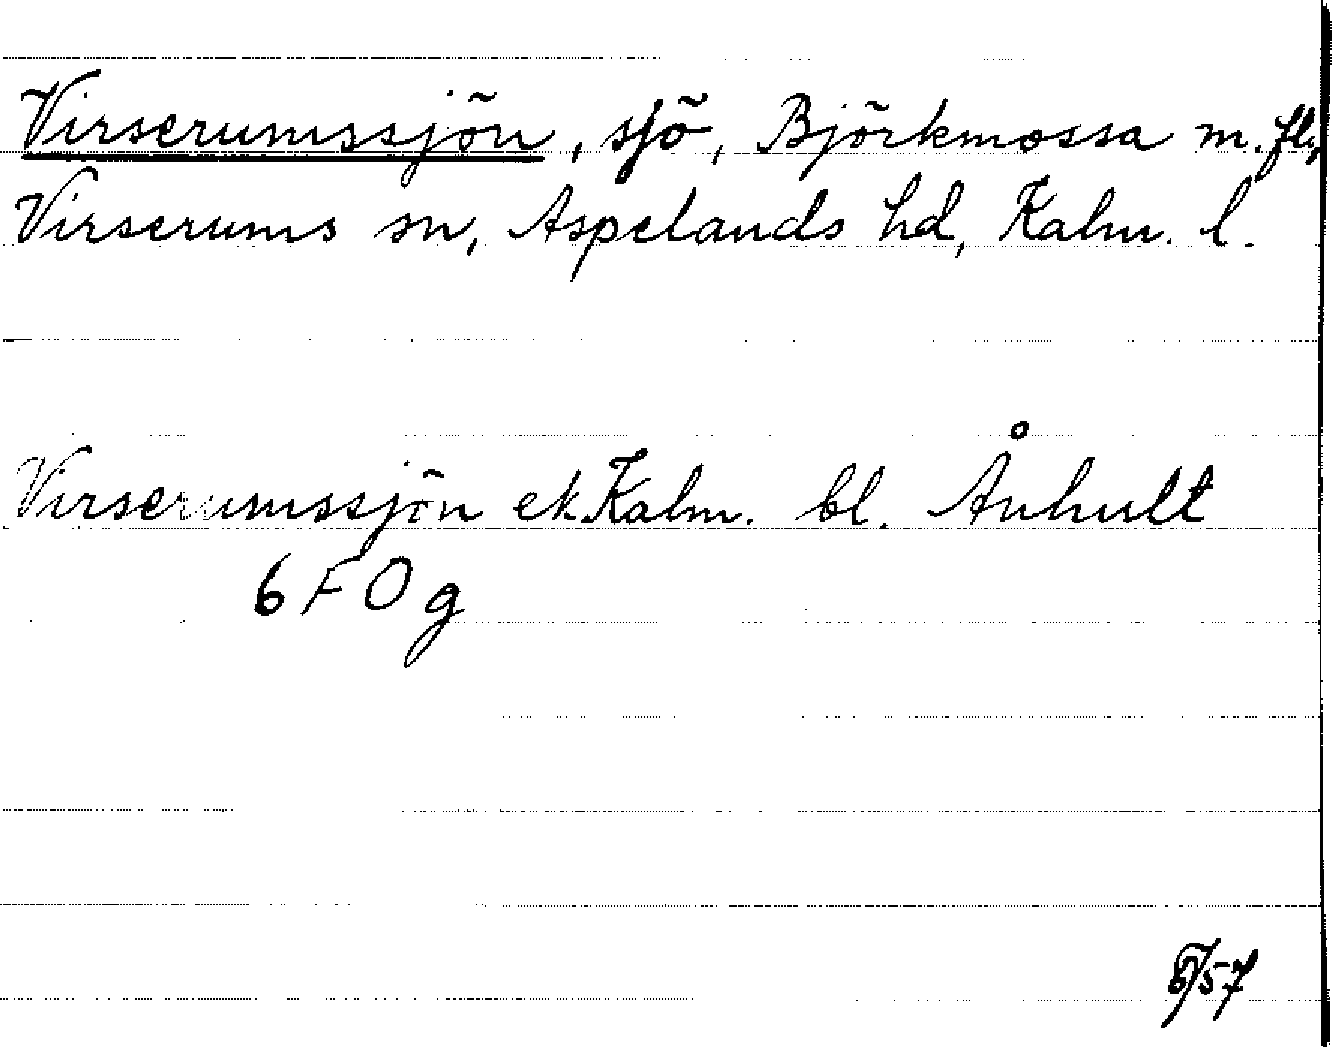 Virserumssjön, sjö, Björkmossa m. fl.,
Virserums sn, Aspelands hd, Kalm. l.
Virserumssjön ek. Kalm. bl. Ånhult
6 F 0 g